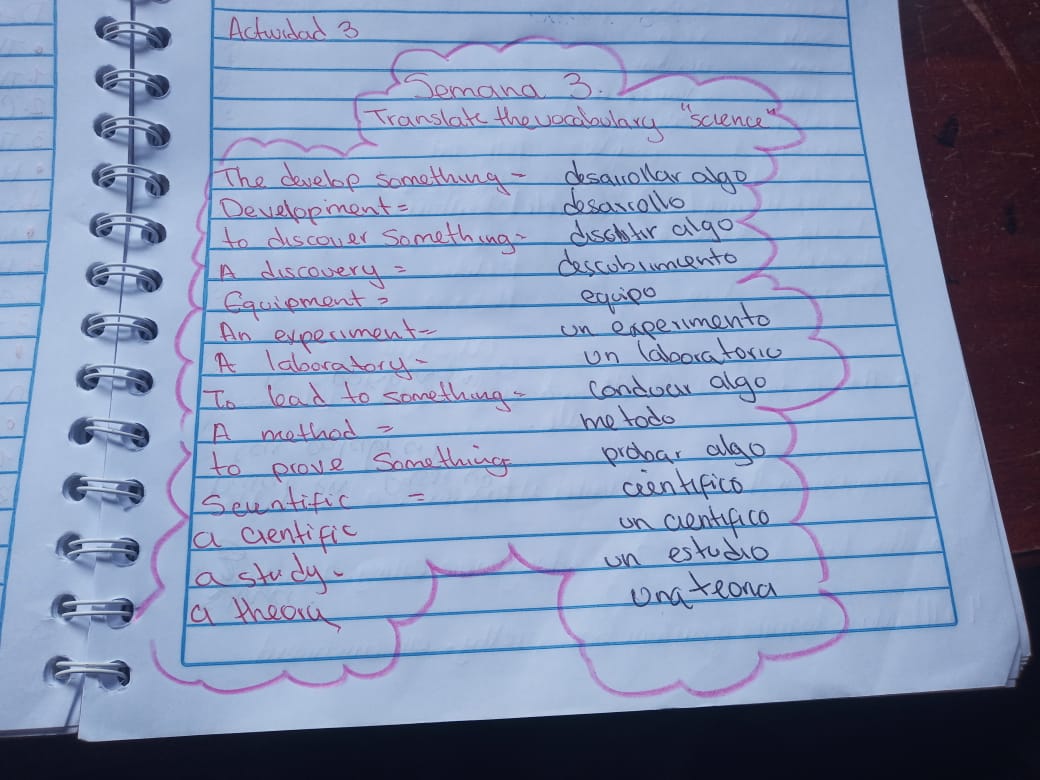 Actividad 3
Semana 3.
Translate the vocabulary "science"
The develop something = desarrollar algo
Development = desarrollo
to discover something = algo
A discovery = descubrimiento
Equipment = equipo
An experiment = un experimento
A laboratory = un laboratorio
To lead to something = conducir algo
A method = metodo
to prove something = probar algo
Scientific = cientifico
a cientific un cientifico
a study - un estudio
a theory una teoria